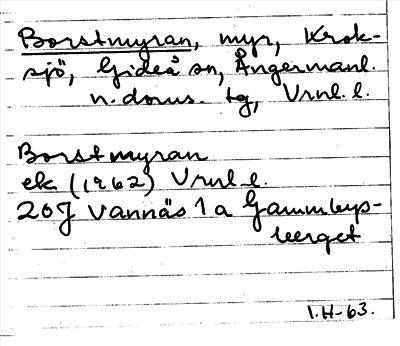 Borstmyran, myr, Krok-
sjö, Gideå sn, Ångermanl.
n. doms. tg, Vrnl. l.
Borstmyran
ek (1962) Vrnl. l.
20J Vännäs 1 a Gammbyns-
berget
I.H-63.